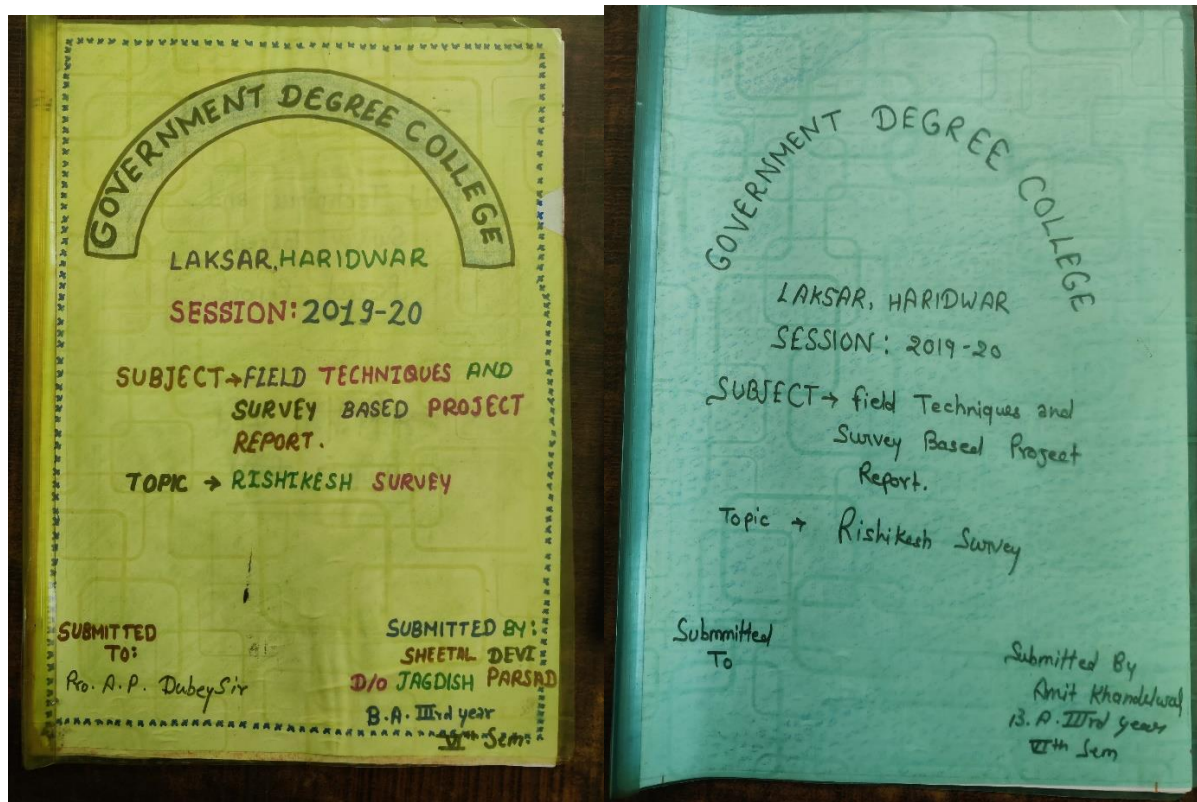 GOVERNMENT DEGREE COLLEGE
LAKSAR, HARIDWAR
SESSION: 2019-20
SUBJECT → FIELD TECHNIQUES AND
SURVEY BASED PROJECT
REPORT.
TOPIC → RISHIKESH SURVEY
SUBMITTED
TO:
Pro. A.P. Dubey Sir
SUBMITTED BY:
SHEETAL DEVI
D/o JAGDISH PARSAD
B.A. IIIrd year
VIth Sem:
GOVERNMENT DEGREE COLLEGE
LAKSAR, HARIDWAR
SESSION: 2019-20
SUBJECT → field Techniques and
Survey Based Project
Report.
Topic → Rishikesh Survey
Submmitted
To
Submitted By
Amit Khandelwal
B.A. IIIrd year
VIth Sem